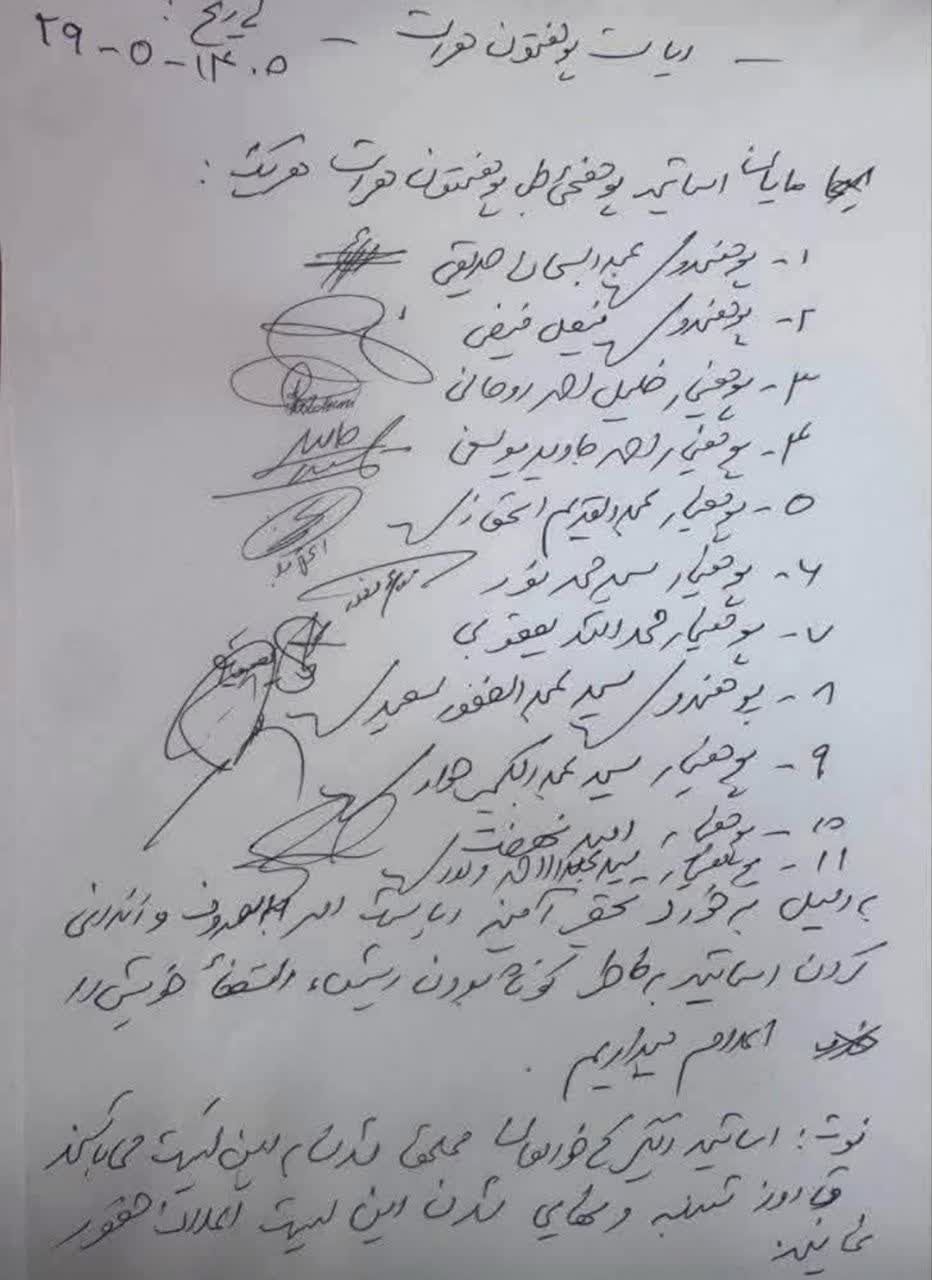 ریاست پوهنتون هرات – تاریخ: ۲۹-۵-۱۴۰۵
مایان اساتید پوهنځی طب پوهنتون هرات هریک:
۱- پوهندوی عبدالسبحان صدیقی
۲- پوهندوی فیصل فیضی
۳- پوهنیار خلیل احمد روحانی
۴- پوهنیار احمد جاوید یوسفی
۵- پوهنیار عبدالقدیم اسحاق زی
۶- پوهنیار سید محمد نور
۷- پوهنیار محمد الله یعقوبی
۸- پوهندوی سید عبدالغفور سعیدی
۹- پوهنیار سید عبدالکبیر جواد
۱۰- پوهنیار امید نهضت
۱۱- پوهنیار سید
به دلیل برخورد تحقیر آمیز ریاست امر بالمعروف و زندانی
کردن اساتید به خاطر کوتاه بودن ریش، استعفأ خویش را
اعلام میداریم.
نوت: اساتید دیگر که خواهان ملحق شدن به این لیست می باشند
تا روز شنبه و نهایی شدن این لیست
نمایند.